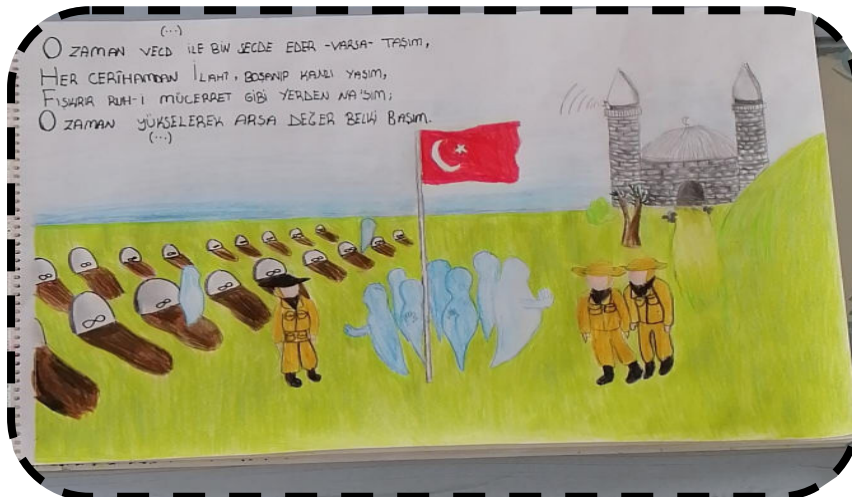 (...)
O ZAMAN VECD İLE BİN SECDE EDER -VARSA- TAŞIM,
HER CERÎHAMDAN İLAHÎ, BOŞANIP KANLI YAŞIM,
FIŞKIRIR RUH-İ MÜCERRET GİBİ YERDEN NA'ŞIM;
O ZAMAN YÜKSELEREK ARŞA DEĞER BELKİ BAŞIM.
(...)